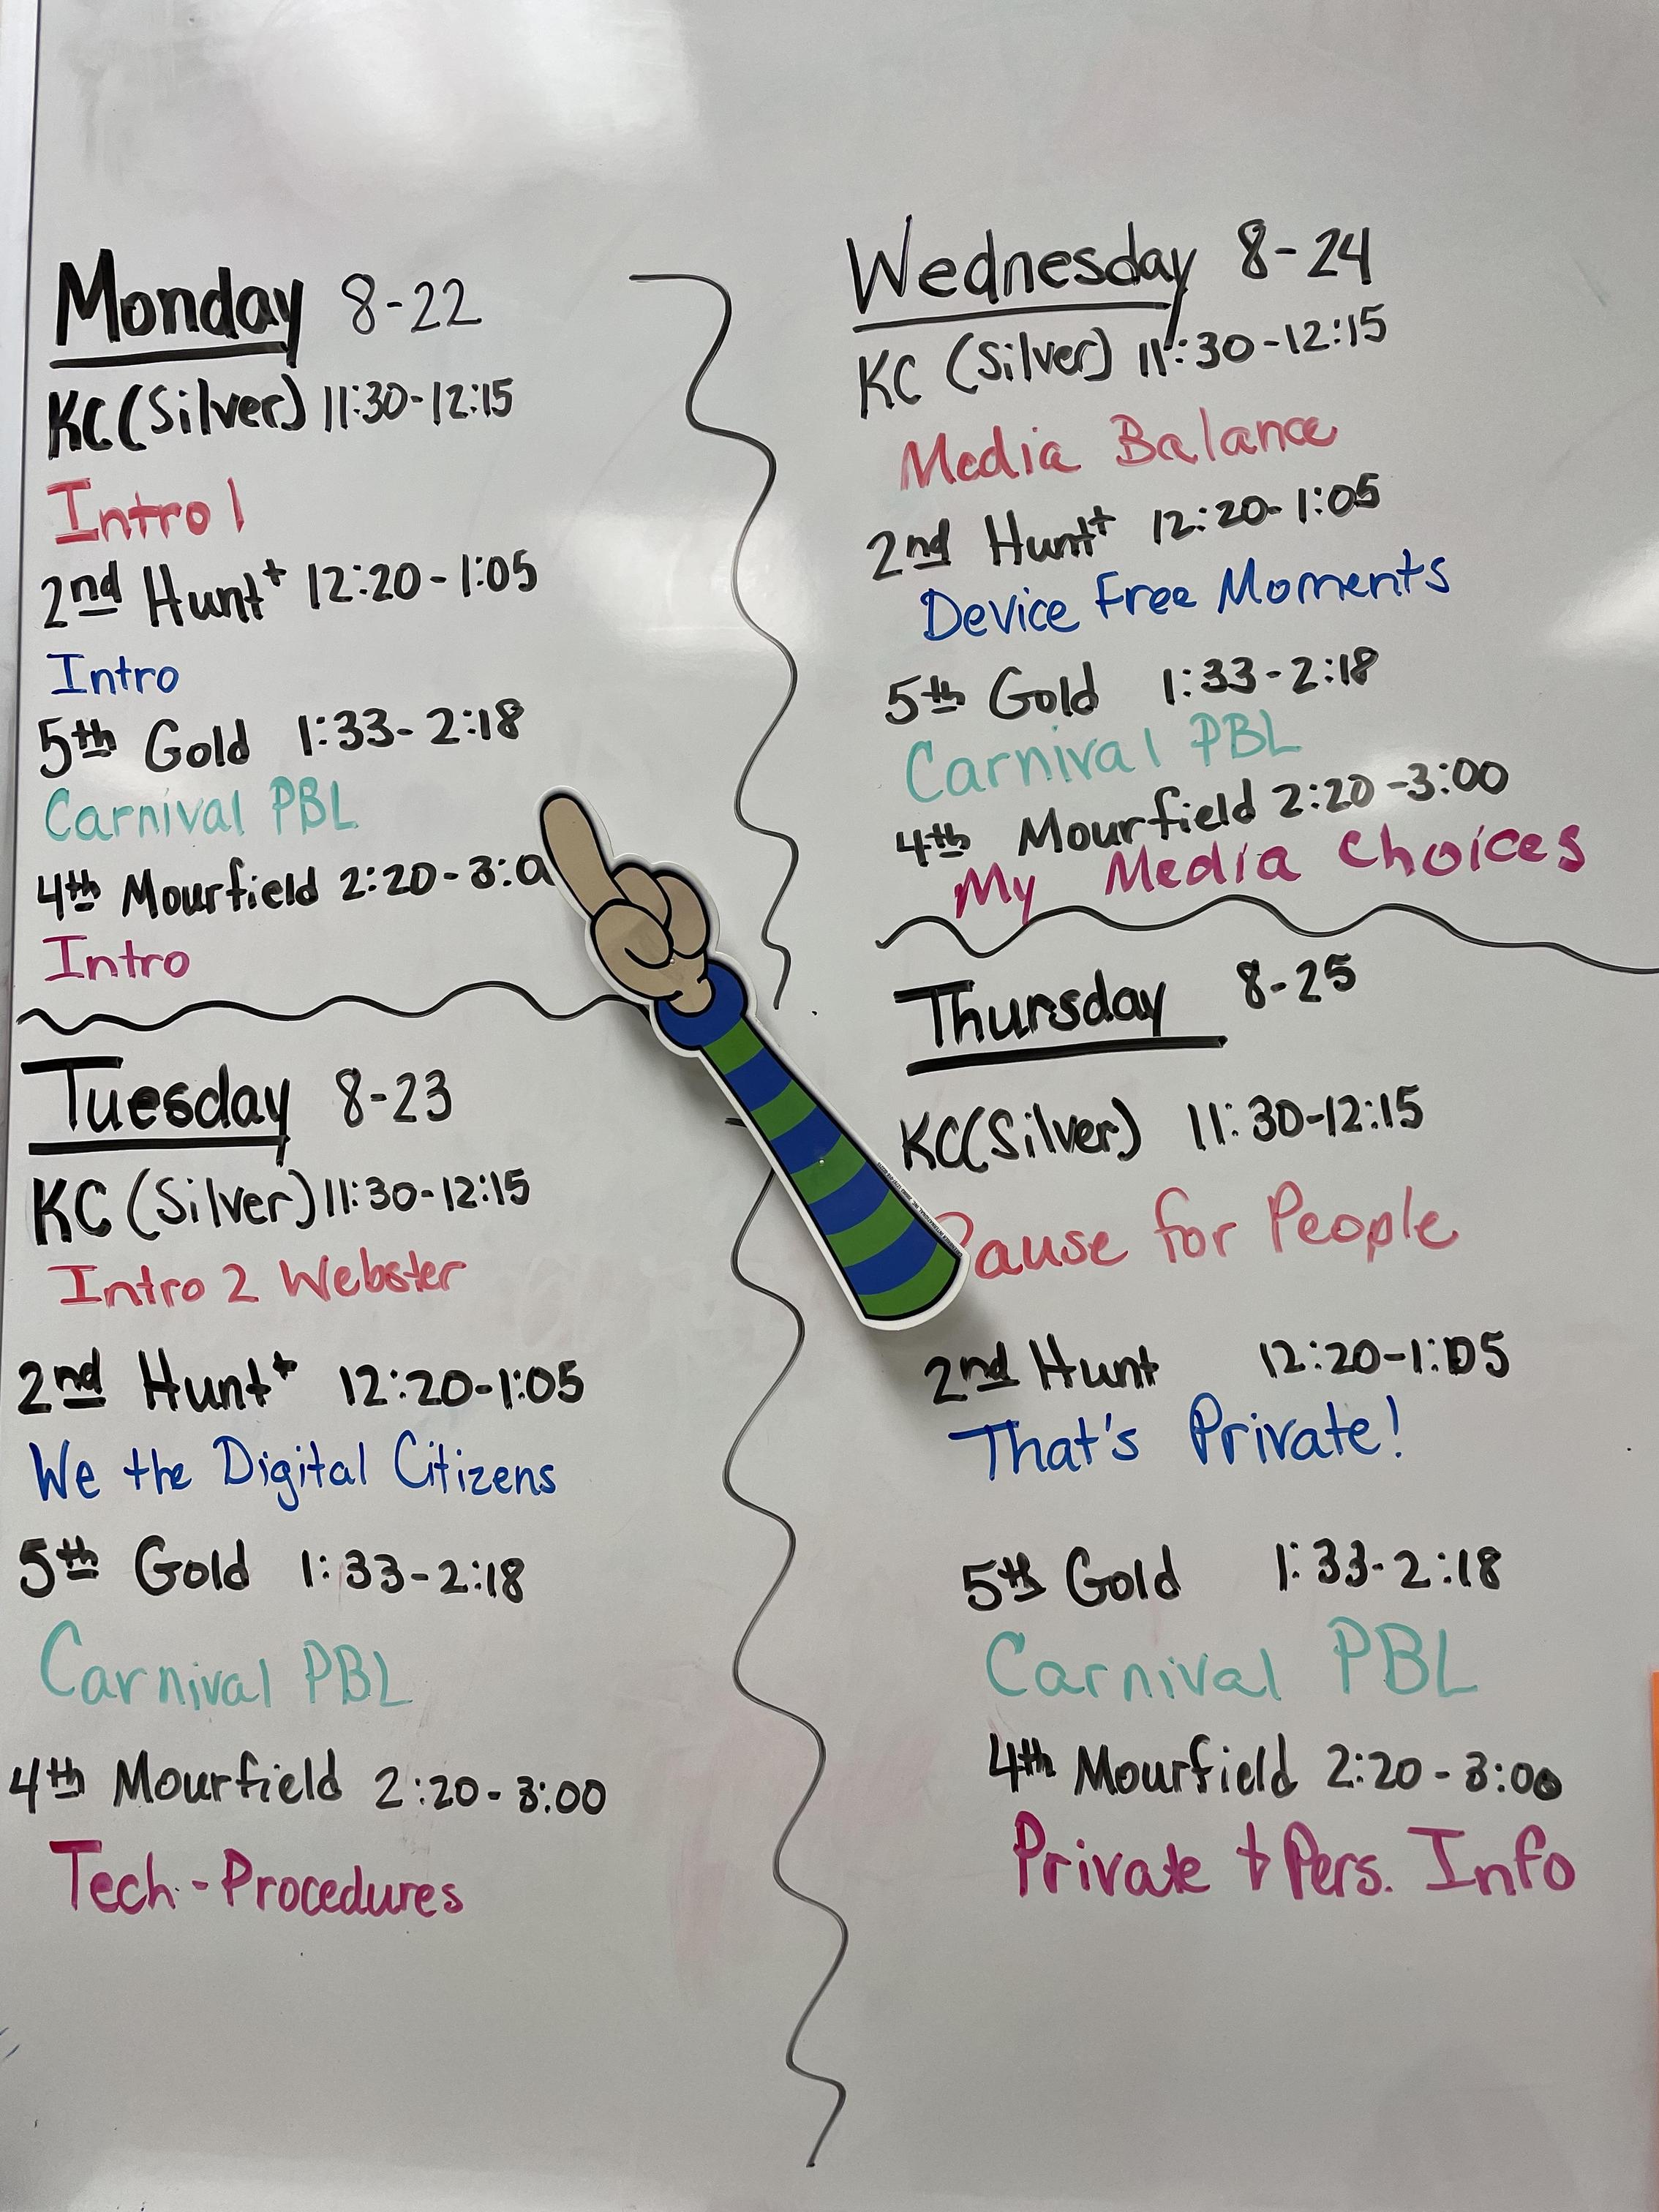 Monday 8-22
KC (Silver) 11:30-12:15
Intro 1
2nd Hunt+ 12:20-1:05
Intro
5th Gold 1:33-2:18
Carnival PBL
4th Mourfield 2:20-3:0
Intro
Tuesday 8-23
KC (Silver) 11:30-12:15
Intro 2 Webster
2nd Hunt+ 12:20-1:05
We the Digital Citizens
5th Gold 1:33-2:18
Carnival PBL
4th Mourfield 2:20-3:00
Tech-Procedures
Wednesday 8-24
KC (Silver) 11:30-12:15
Media Balance
2nd Hunt+ 12:20-1:05
Device Free Moments
5th Gold 1:33-2:18
Carnival PBL
4th Mourfield 2:20-3:00
My Media Choices
Thursday 8-25
KC (Silver) 11:30-12:15
Pause for People
2nd Hunt 12:20-1:05
That's Private!
5th Gold 1:33-2:18
Carnival PBL
4th Mourfield 2:20-3:00
Private & Pers. Info